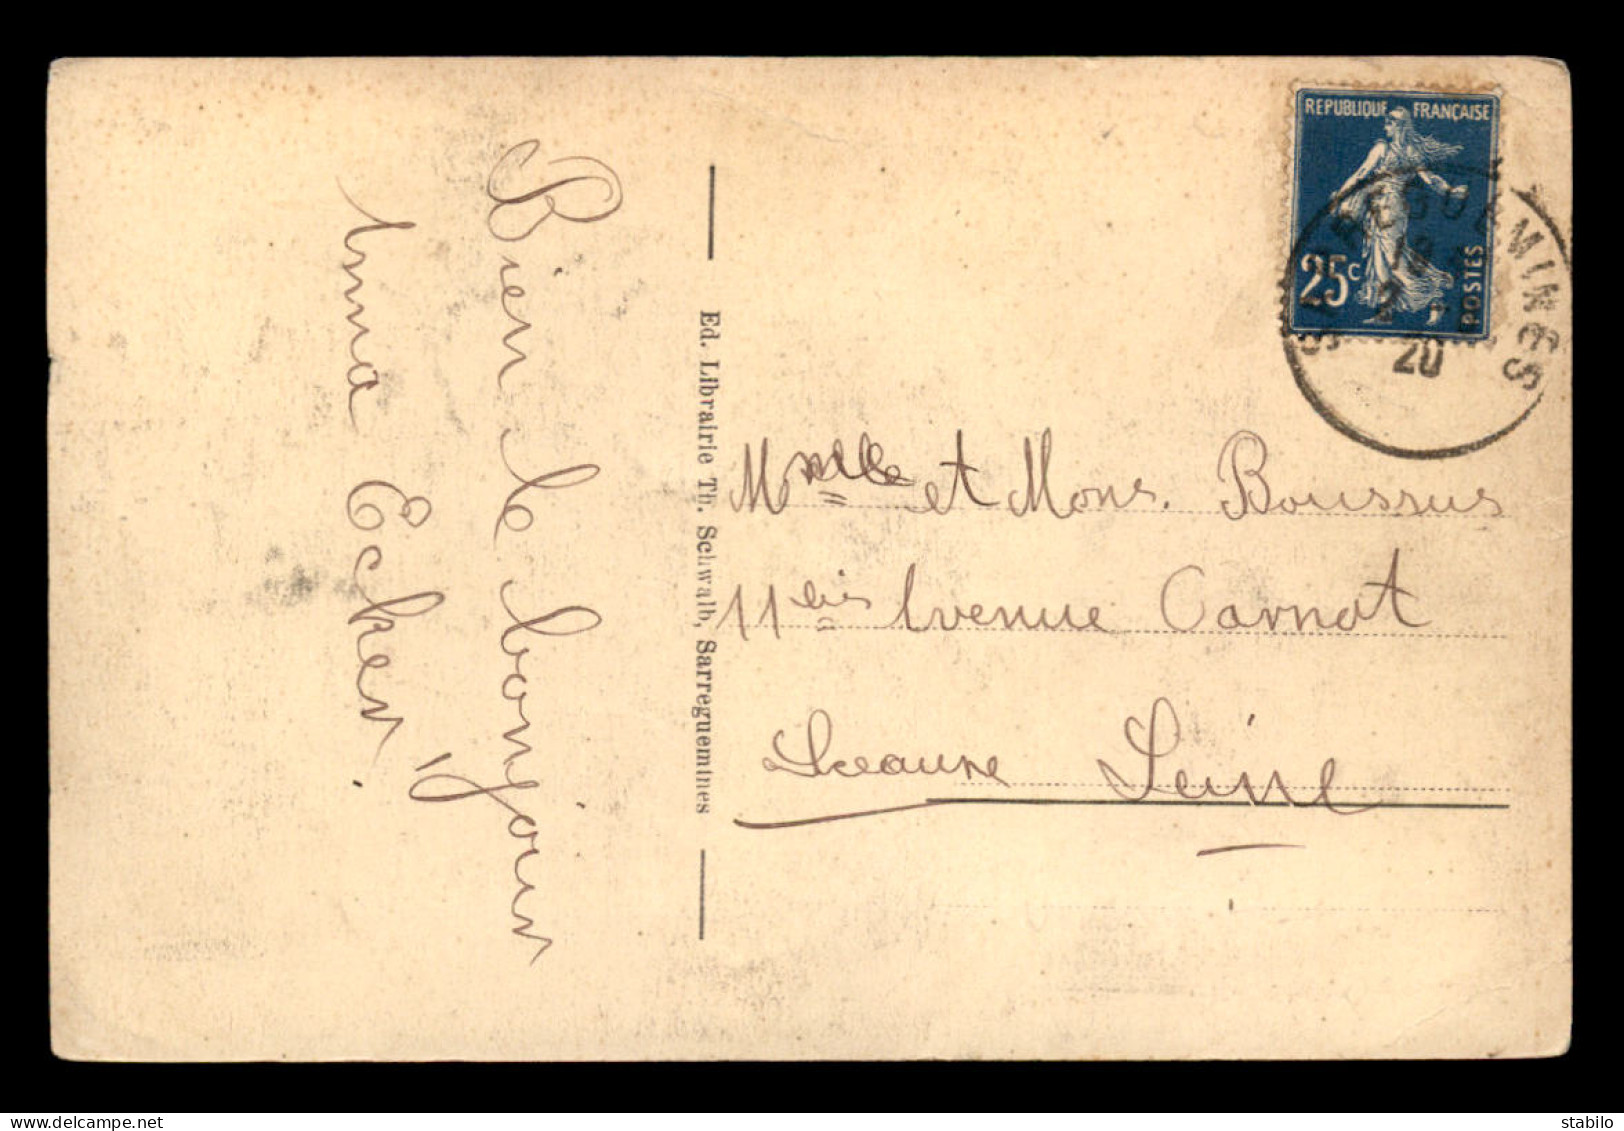 Bien le bonjour
Anna Ecker
Ed. Librairie Th. Schwalb, Sarreguemines
REPUBLIQUE FRANÇAISE
25c
POSTES
SARREGUEMINES
20
et Mons. Boussus
11bis Avenue Carnot
Sceaune Seine
stabilo